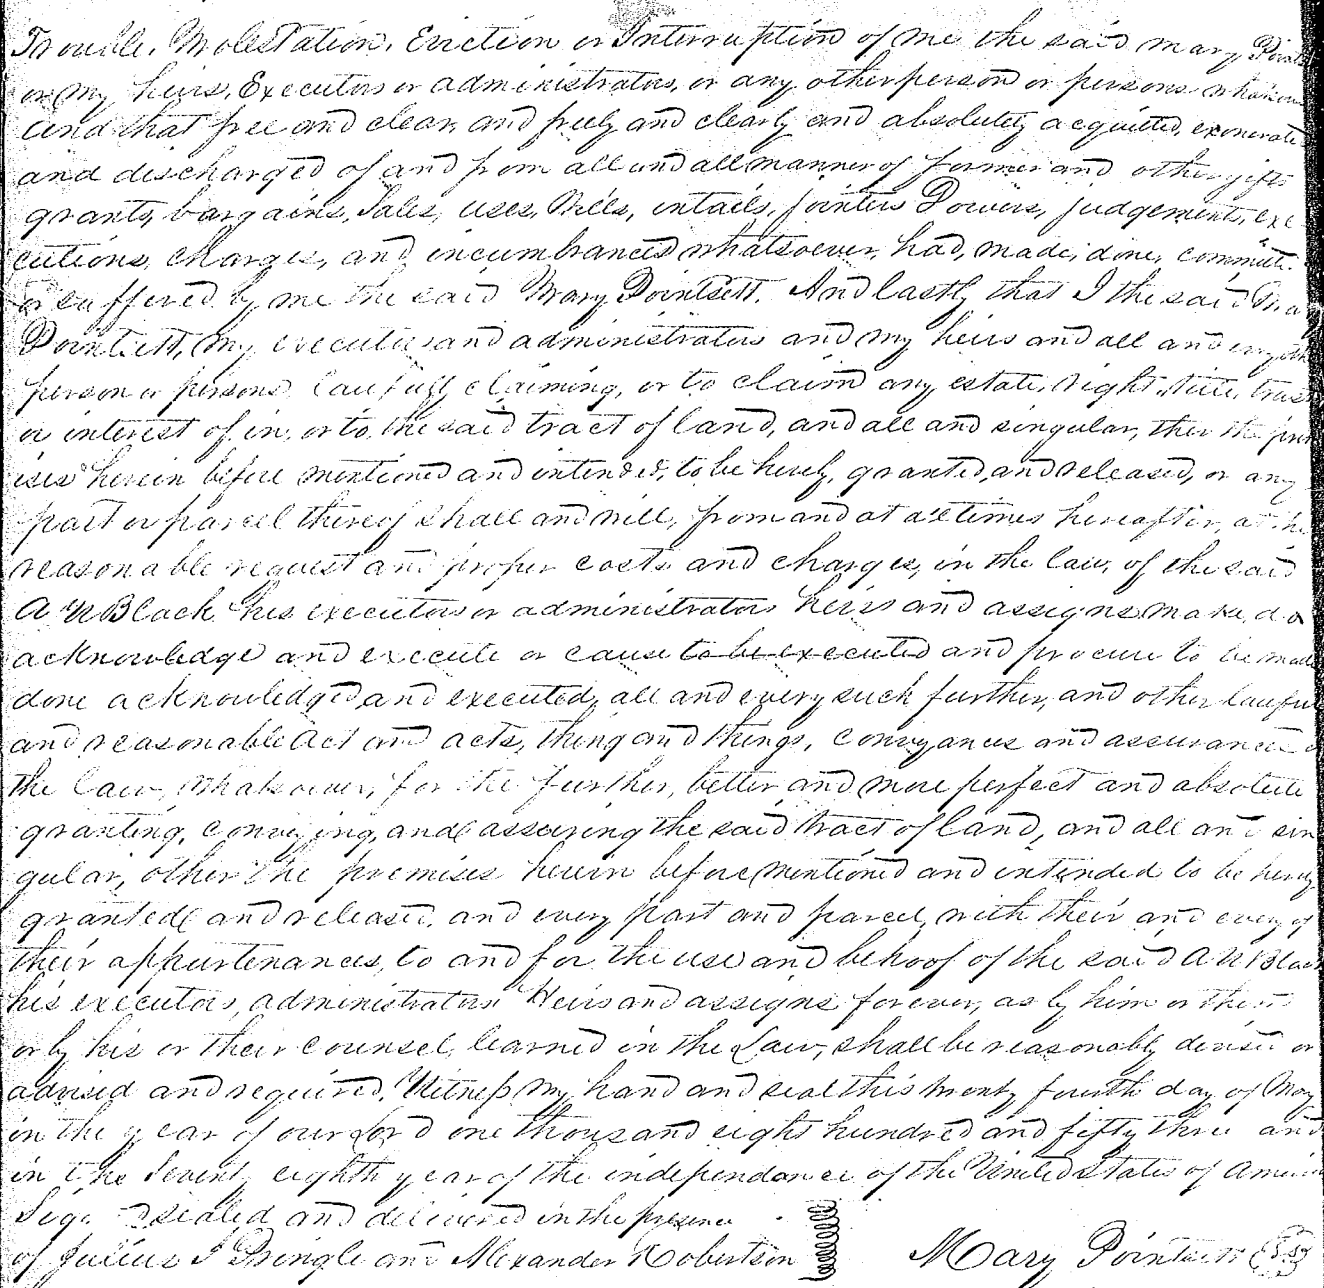 Trouble, Molestation, Eviction or Interruption of me the said Mary Points
or my heirs, Executors or administrators, or any other person or persons whatsoev
and that free and clear, and freely and clearly and absolutely acquitted, exonerated
and discharged of and from all and all manner of former and other gifts
grants, bargains, Sales, uses, Wills, intails, jointers Dowers, judgements, exe
cutions, charges, and incumbrances whatsoever, had, made, done, committ
or suffered by me the said Mary Pointsett. And lastly that I the said Ma
Pointsett, my executors and administrators and my heirs and all and every other
person or persons lawfully claiming, or to claim any estate, right, title, trust
or interest of in, or to, the said tract of land, and all and singular, ther the prem
ises herein before mentioned and intended, to be hereby, granted, and released, or any
part or parcel thereof shall and will, from and at all times hereafter, at the
reasonable request and proper costs and charges, in the law, of the said
A N Black his executors or administrators heirs and assigns, make, do
acknowledge and execute or cause to be executed and procure to be made
done acknowledged, and executed, all and every such further, and other lawful
and reasonable Act and acts, thing and things, conveyances and assurances
the law, whatsoever, for the further, better, and more perfect and absolute
granting, conveying, and assuring the said tract of land, and all and sin
gular, other the premises herein before mentioned and intended to be hereby
granted and released, and every part and parcel, with their and every of
their appurtenances, to and for the use and behoof of the said A N Black
his executors, administrators Heirs and assigns forever, as by him or them
or by his or their counsel, learned in the Law, shall be reasonably devised or
advised and required. Witness my hand and seal this twenty fourth day of May
in the year of our Lord one thousand eight hundred and fifty three and
in the Seventy eighth year of the independance of the United States of America
Sig d sealed and delivered in the presence
of Julius I Pringle and Alexander Robertson Mary Pointsett